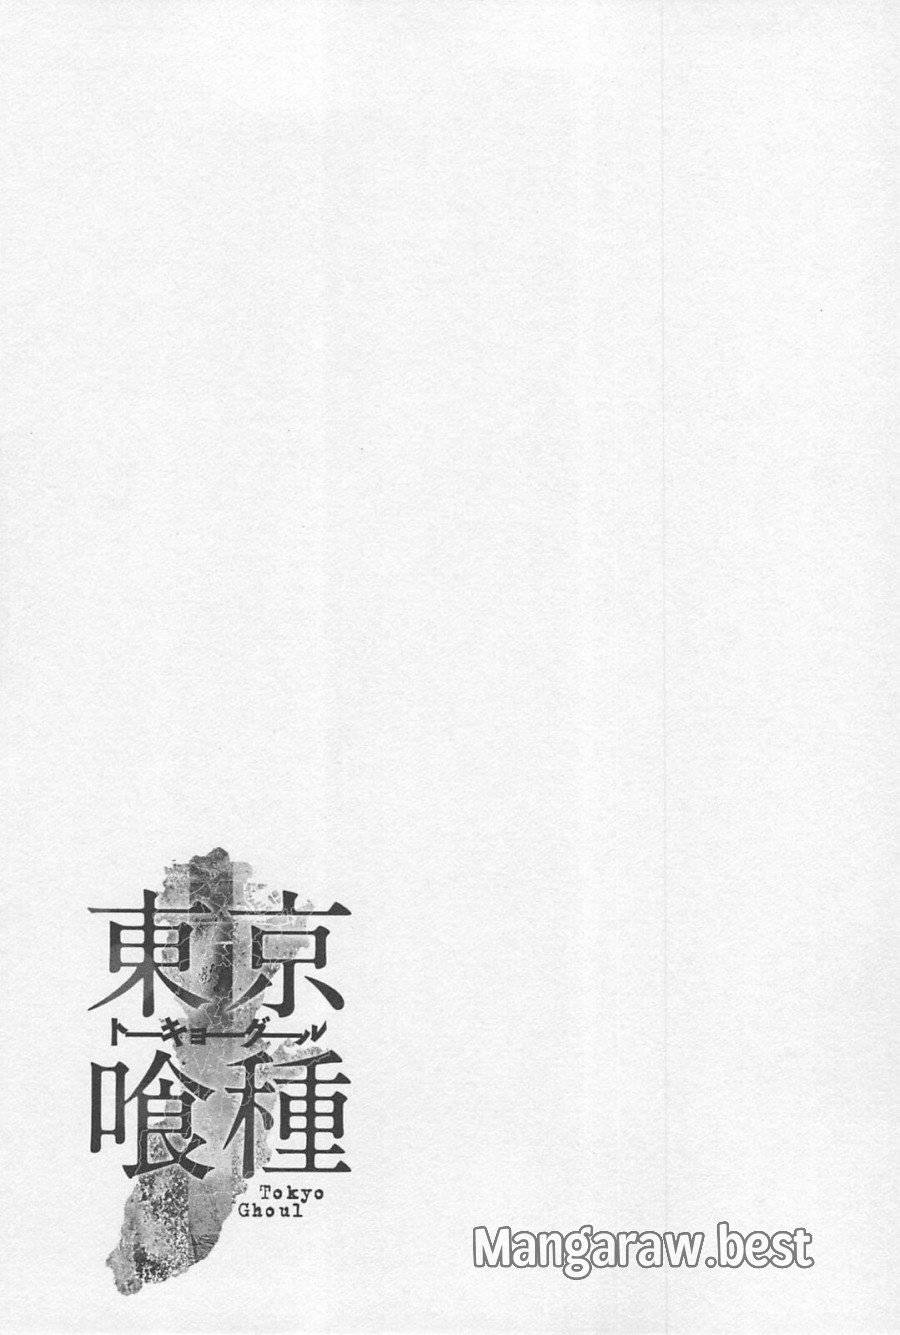 東京
トーキョーグール
喰種
Tokyo
Ghoul
Mangaraw.best